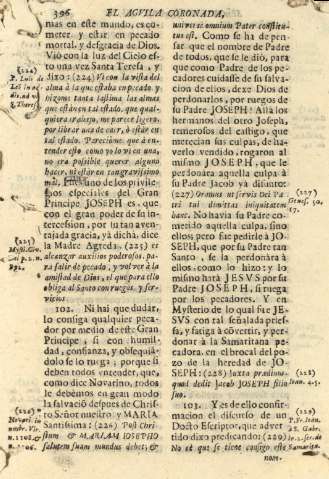 396 EL AGVILA CORONADA,
mas en este mundo, es co-
meter, y estàr en pecado
mortal, y desgracia de Dios.
Viò con la luz del Cielo es-
to una vez Santa Teresa, y
dixo: (224) Vi con la vista del
alma à la que estaba en pecado y
tan lastima las almas
que estàn en tal estado, que qual-
quiera trabajo, me parece ligero,
por librar una de èl estàr en
tal estado. Pareciòme que à en-
tender esto como yo lo vi en una,
no era possible querer alguno
hacer, ni estàr en tan gravissimo
mal. Pues uno de los privile-
gios especiales del Gran
Principe JOSEPH es, que
con el gran poder de su in-
tercesion, por su tan aven-
tajada gracia, yà dicha, dice
la Madre Agreda, (225) es
alcanzar auxilios poderosos, pa-
ra salir de pecado, y volver à la
amistad de Dios, el que para ello
obliga al Santo con ruegos, y ser-
vicios.
102. Ni hai que dudar,
lo consiga qualquier peca-
dor por medio de este Gran
Principe, si con humil-
dad, confianza, y obsequiã-
dolo se lo ruega; porque si
deben todos entender, que,
como dice Novarino, todos
le debèmos en gran modo
la salvaciõ despues de Chris-
to Señor nuestro y MARIA
Santissima: (226) Post Chri-
stum & MARIAM IOSEPHO
salutem suam mundus debet; &
(224)
P. Luis de
Leò in ac-
dis. ad vi
S. Theres.
(225)
Myst. Civ.
Dei p. 2. n.
892.
(226)
Novari. in
umbr. Vir.
n. 1208. &
universi omnium Pater constitu-
tus est. Como se ha de pen-
sar que el nombre de Padre
de todos, que se le diò, para
que como Padre de los pe-
cadores cuidasse de su salva-
cion de ellos, dexe Dios de
perdonarlos, por ruegos de
su Padre JOSEPH? Allà los
hermanos del otro Joseph,
temerosos del castigo, que
merecian sus culpas, de ha-
verlo vendido, rogaron al
mismo JOSEPH, que le
perdonàra aquella culpa à
su Padre Jacob yà difunto:
(227) Oramus ut servis Dei Pa-
tris tui dimittas iniquitatem
hanc. No havia su Padre co-
metido aquella culpa, sino
ellos; pero se pedirla à JO-
SEPH, que por su Padre tan
Santo, se la perdonàra à
ellos como lo hizo: y lo
mismo harà JESVS por su
Padre JOSEPH, si ruega
por los pecadores. Y en
Mysterio de lo qual fue JE-
SVS con tal señalada pries-
sa, y fatiga à cõvertir, y per-
donar à la Samaritana pe-
cadora, en el brocal del po-
zo de la heredad de JO-
SEPH: (228) Juxta prædium
quod dedit Jacob JOSEPH filio
suo.
103. Y es de ello confir-
macion el discurso de un
Docto Escriptor, que adver-
tido dixo predicando: (229)
No sè que se tiene consigo este
nom-
(227)
Genes. 50.
17.
(228)
Ioan. 4. 5.
(229)
P. Fr. Ioan.
SS. Gabr.